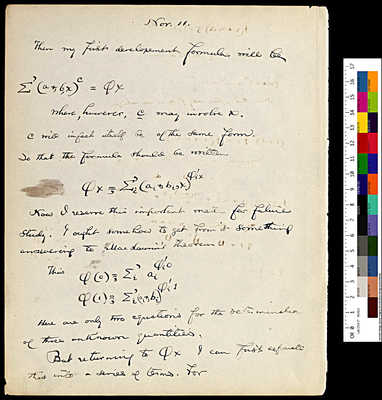 Nov. 11.
Then my first development formula will be
Σ'(a+bx)^c = φx
where, however, c may involve x.
c will in fact itself be of the same form.
So that the formula should be written
φx = Σ'(a+bx)
Now I reserve this important matter for future
study. I ought somehow to get from it something
answering to Maclaurin's Theorem
Thus φ(0) = Σ' a
φ(1) = Σ'
Here are only two equations for the determination
of three unknown quantities.
But returning to φx I can first separate
this into a series of terms. For